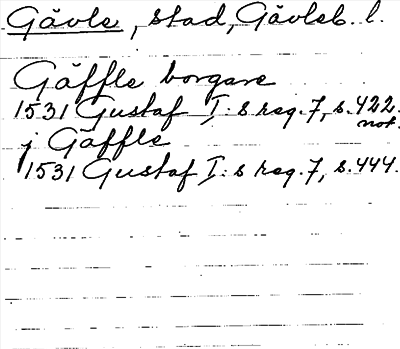 Gävle, stad, Gävleb. l.
Gäffle borgare
1531 Gustaf I:s reg. 7, s. 422.
not.
j Gäffle
1531 Gustaf I:s reg. 7, s. 444.